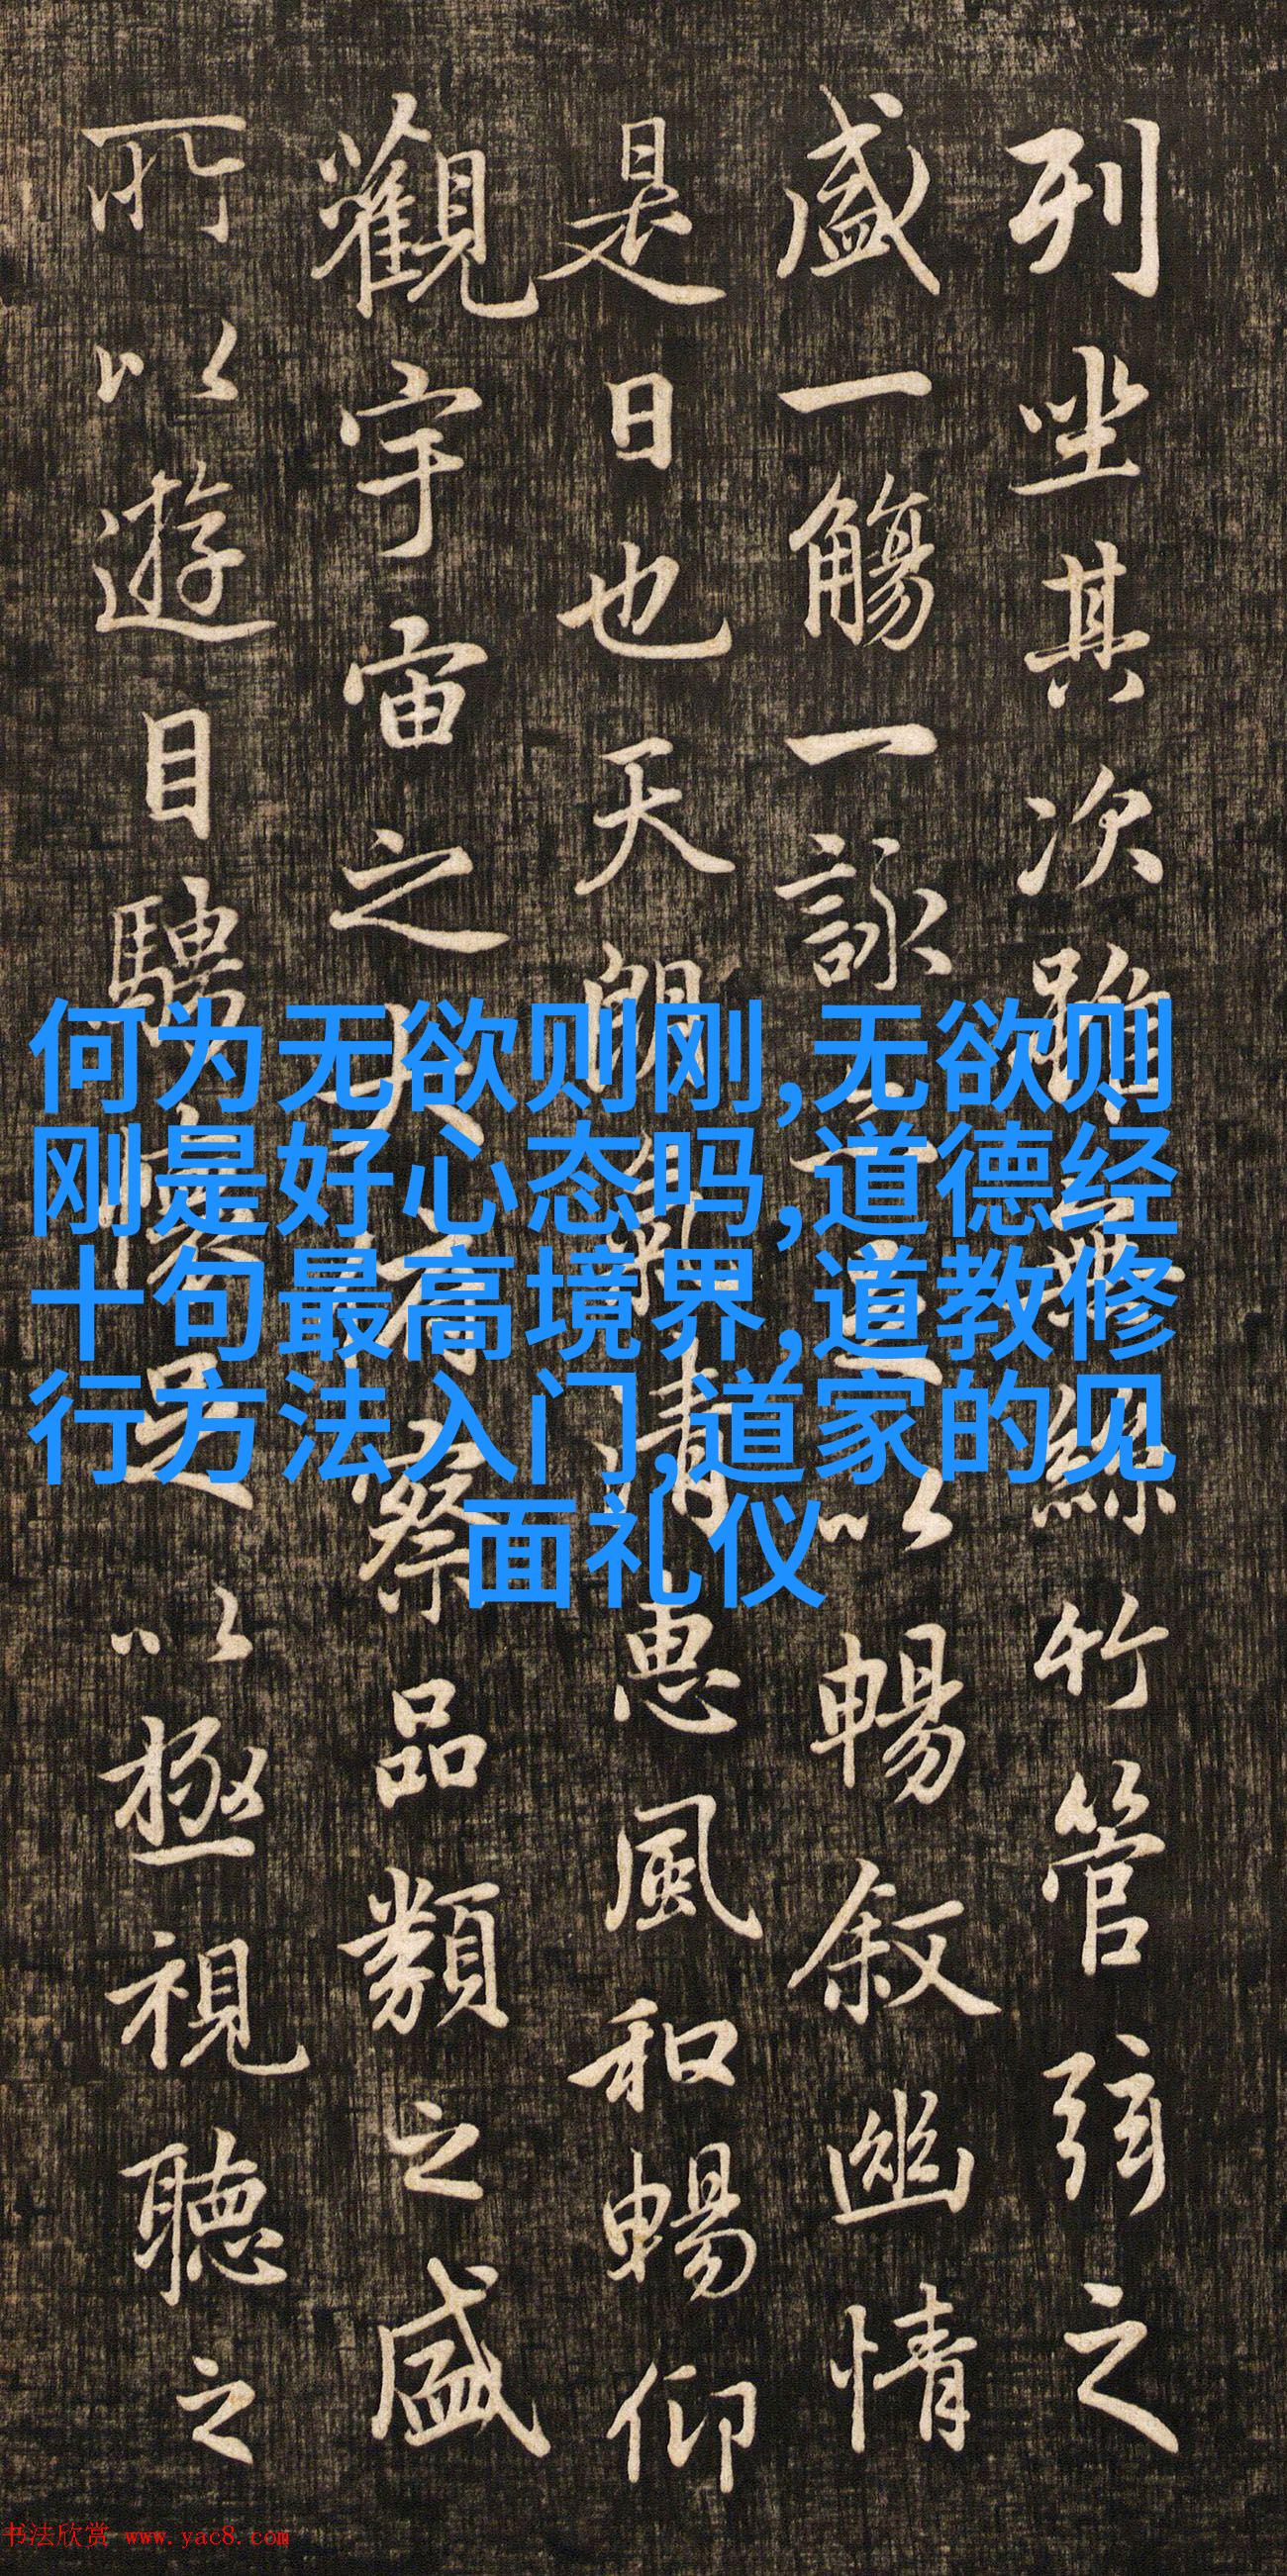 列坐其次雖絲竹管弦之
盛一觴一詠以暢叙幽情
是日也天朗清惠風和暢仰
觀宇宙之大察品類之盛
所以遊目騁以極視聽之
何为无欲则刚,无欲则
刚是好心态吗,道德经
十句最高境界,道教修
行方法入门,道家的见
面礼仪
书法欣赏 www.yac8.com